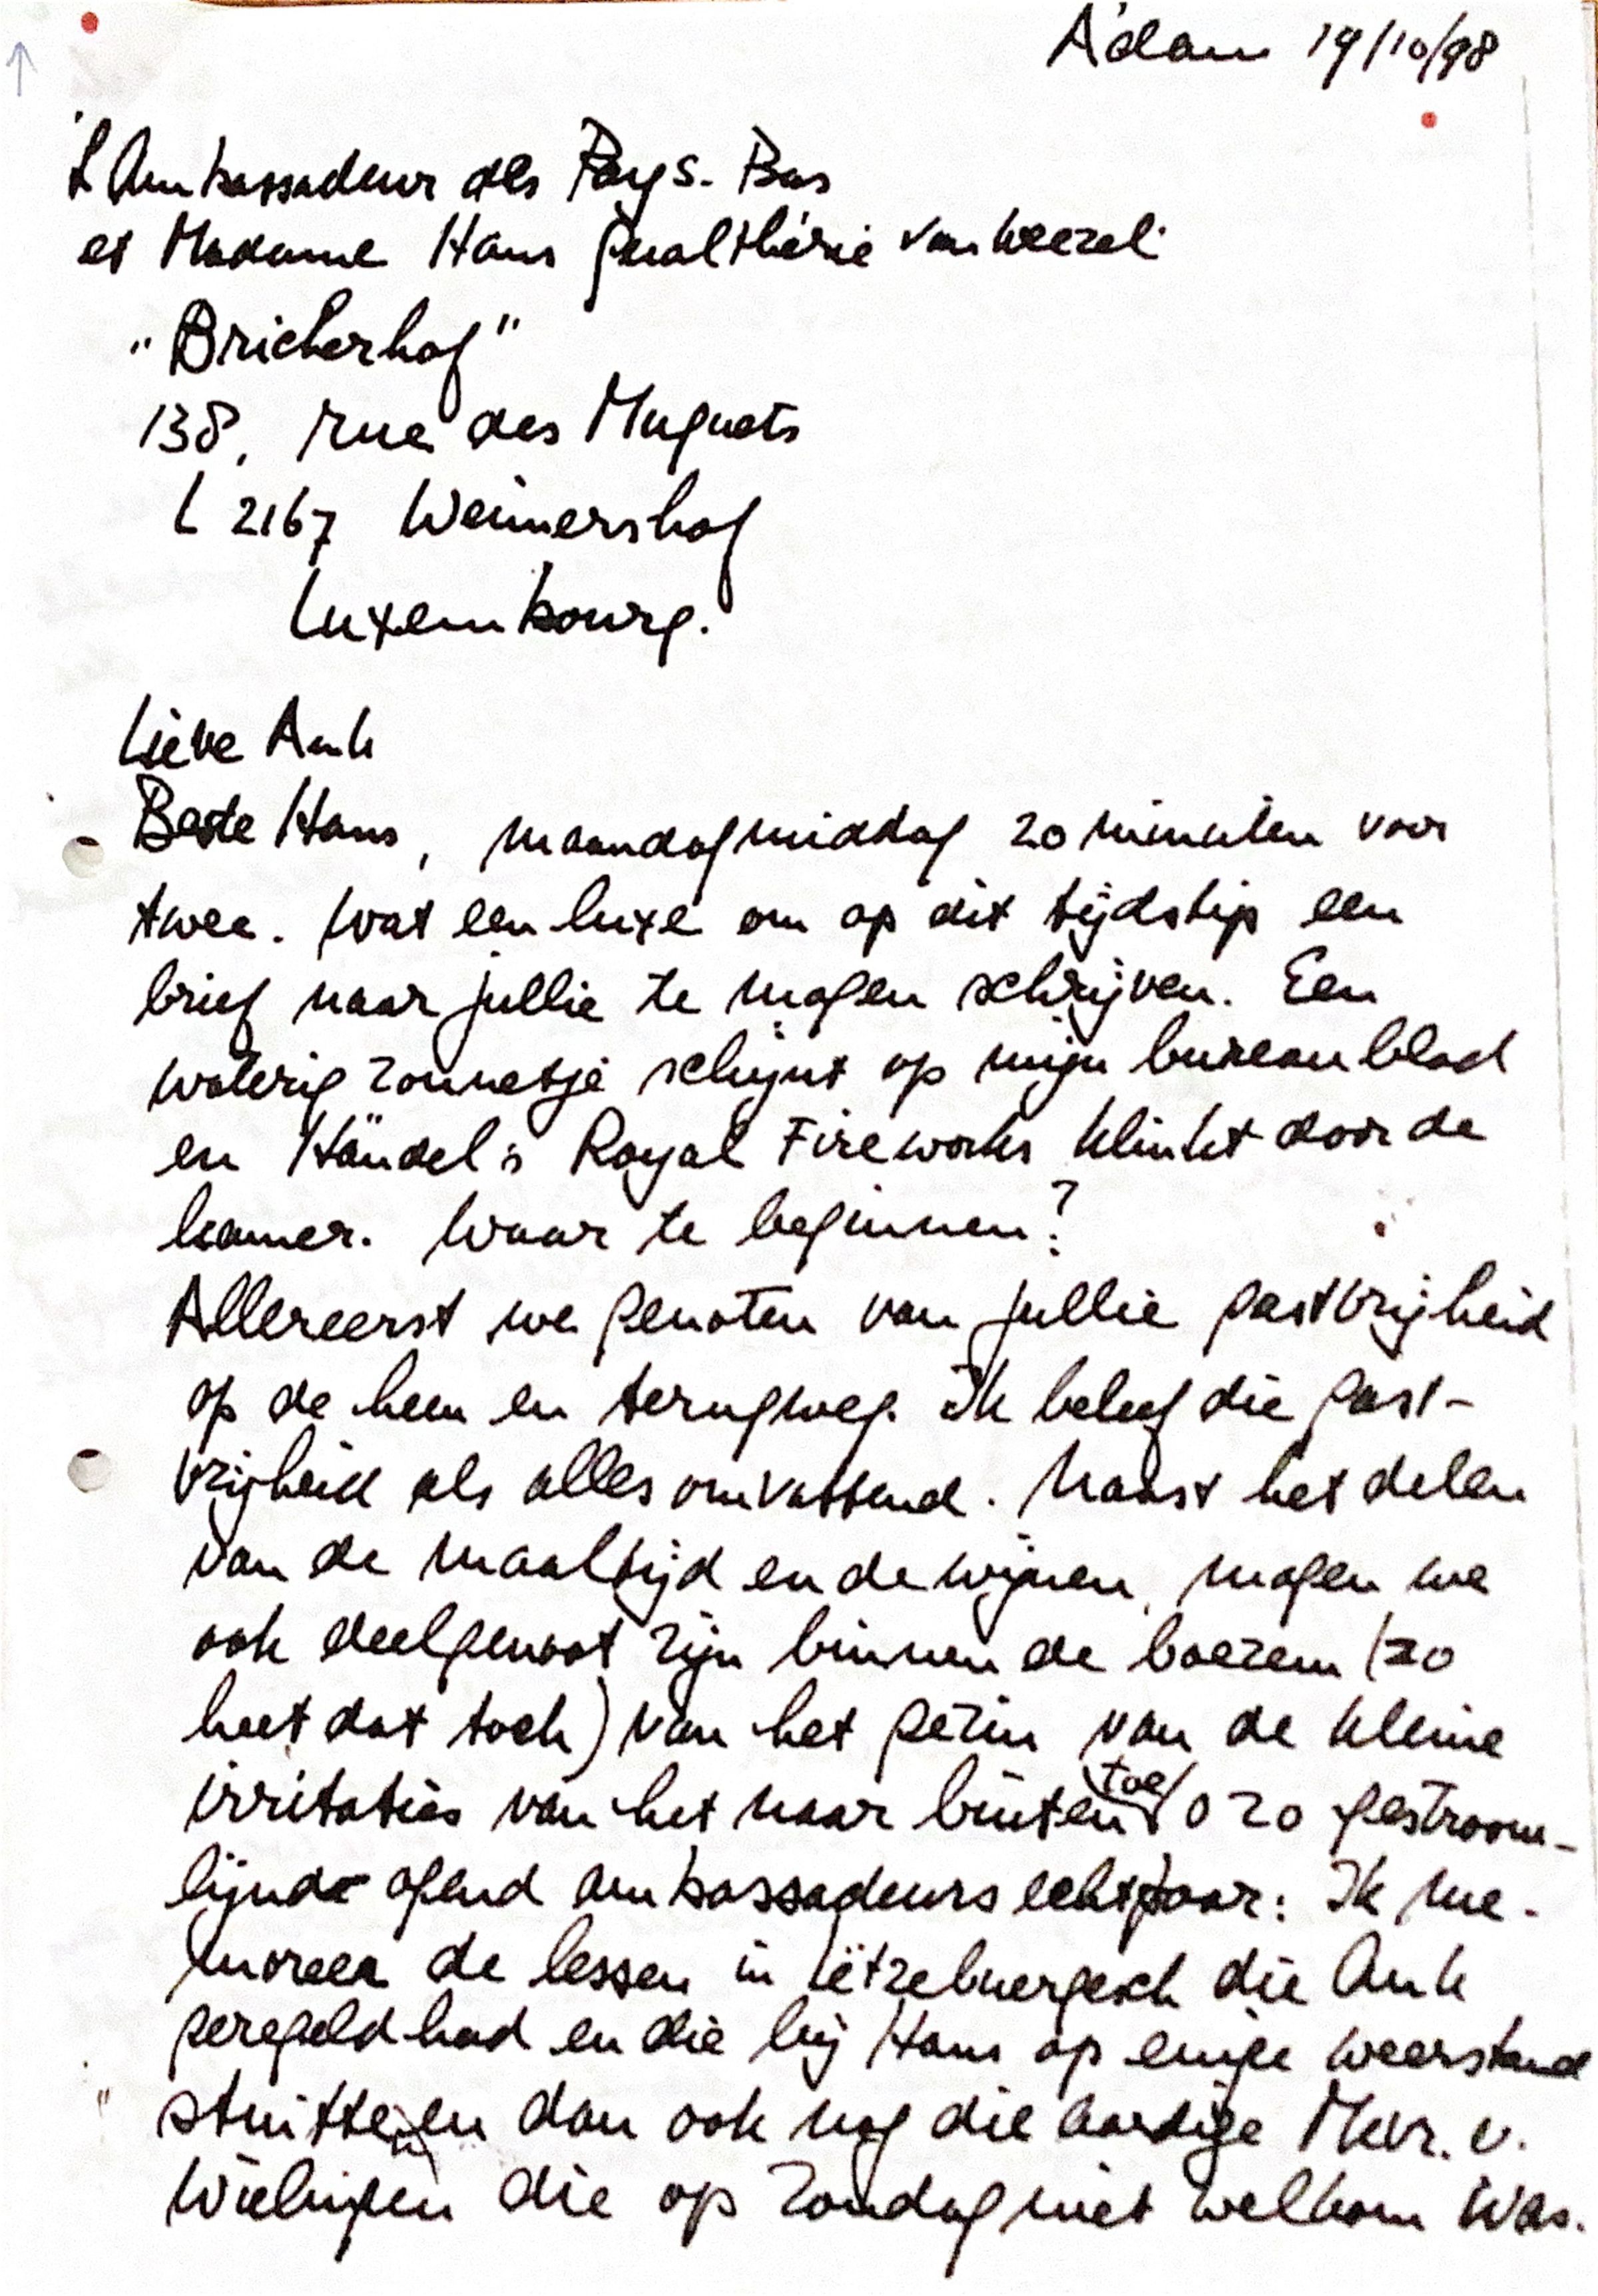 A'dam 19/10/98
L'Ambassadeur des Pays-Bas
et Madame Hans Gualthérie van Weezel
"Bricherhof"
138, rue des Muguets
L 2167 Weimershof
Luxembourg.
Lieve Ank
Beste Hans, maandagmiddag 20 minuten voor
twee. Wat een luxe om op dit tijdstip een
brief naar jullie te mogen schrijven. Een
waterig zonnetje schijnt op mijn bureaublad
en Händel's Royal Fireworks klinkt door de
kamer. Waar te beginnen?
Allereerst we genoten van jullie gastvrijheid
op de heen en terugweg. Ik beleef die gast-
vrijheid als alles omvattend. Naast het delen
van de maaltijd en de wijnen, mogen we
ook deelgenoot zijn binnen de boezem (zo
heet dat toch) van het gezin van de kleine
irritaties van het naar buiten toe o zo gestroom-
lijnd ogend ambassadeurs echtpaar: Ik me-
moreer de lessen in lëtzebuergesch die Ank
geregeld had en die bij Hans op enige weerstand
stuitten en dan ook nog die aardige Mevr. v.
Wielingen die op zondag niet welkom was.